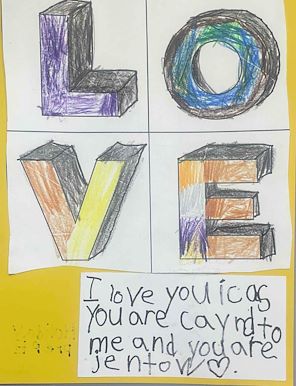 L O
V E
I love you icas
you are caynd to
me and you are
jentow ♡.